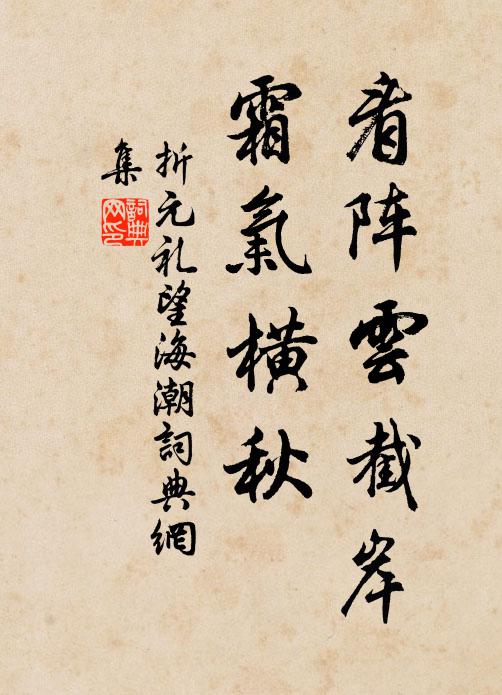 看阵雲截岸
霜氣横秋
折元礼望海潮詞典網
集
詞典
网印